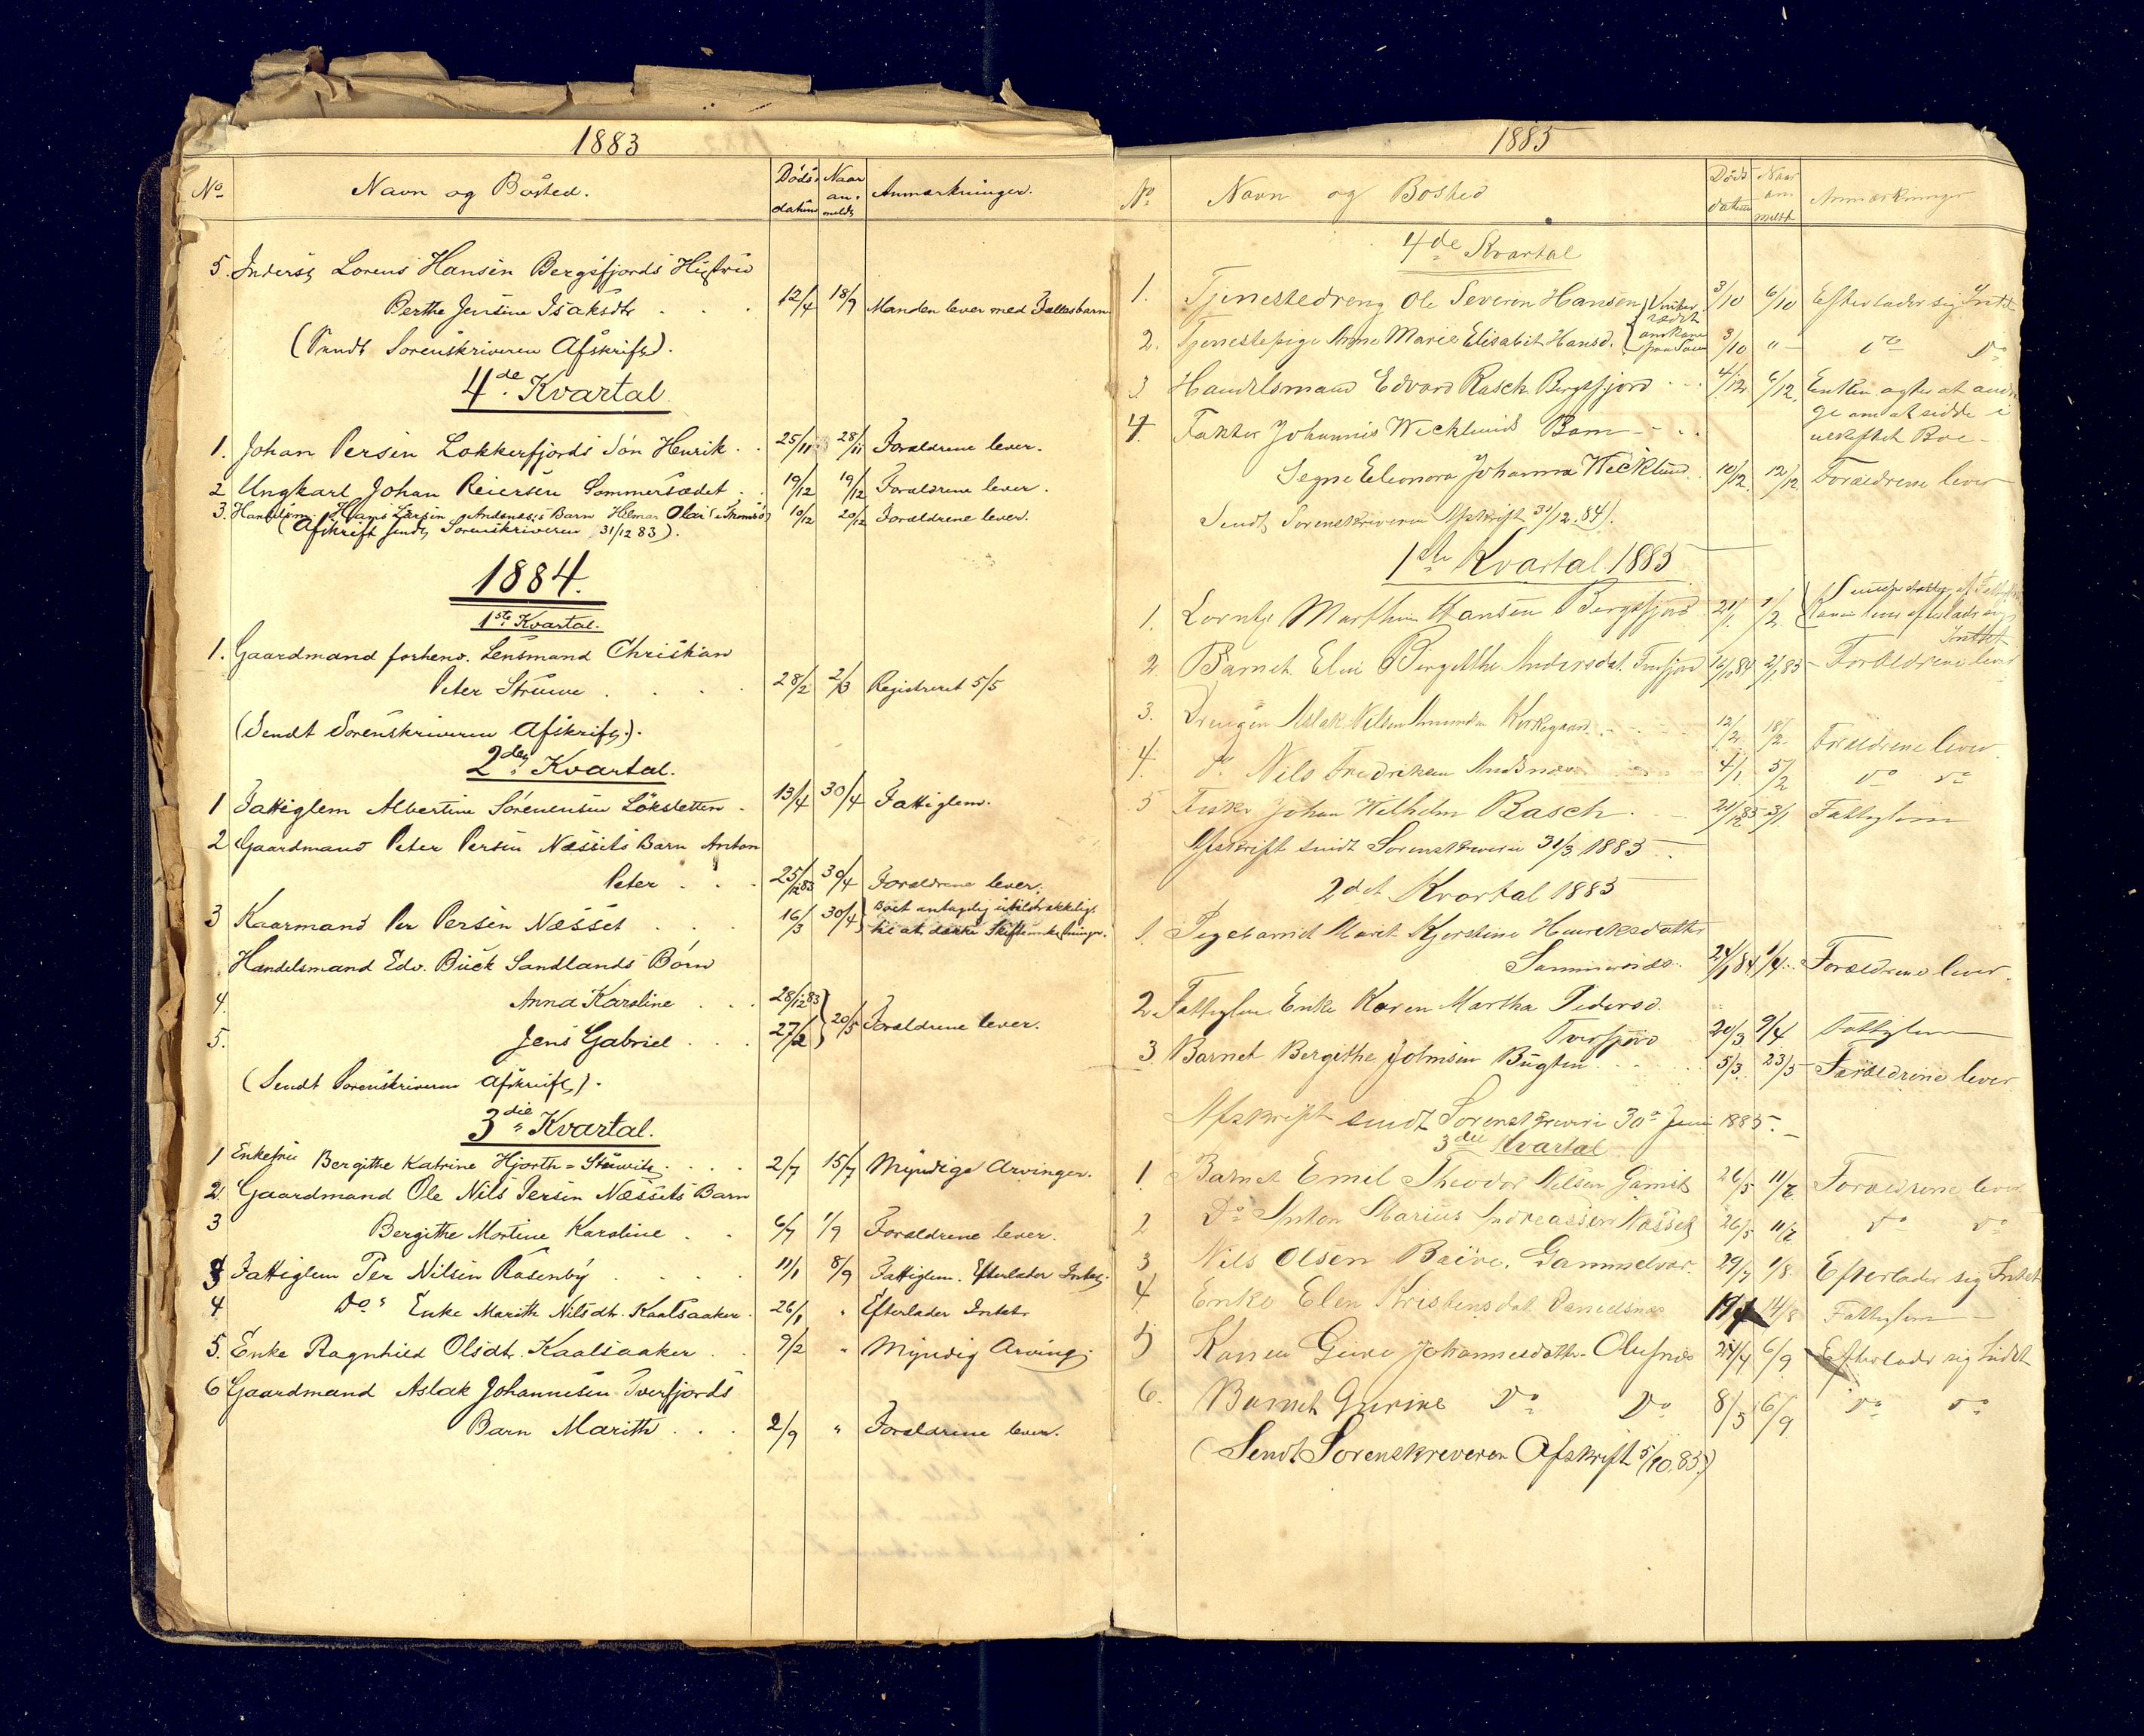 1883
No. Navn og Bosted. Døds datum Naar an- meldt Anmærkninger.
5. Inderst Lorens Hansen Bergsfjords Hustru
Berthe Jensine Isaksdtr. 12/4 18/9 Manden lever med Fællesbarn
(Sendt Sorenskriveren Afskrift).
4de Kvartal
1. Johan Persen Lokkerfjords Søn Henrik 25/11 28/11 Forældrene lever.
2 Ungkarl Johan Reiersen Sommersædet 19/12 19/12 Forældrene lever.
3. Handelsm. Hans Larsen Andsnæs's Barn Helmer Olai i Tromsø 10/12 20/12 Forældrene lever.
(Afskrift sendt Sorenskriveren 31/12 83).
1884.
1ste Kvartal.
1. Gaardmand forhenv. Lensmand Christian
Peter Struwe 28/2 2/3 Registreret 5/5
(Sendt Sorenskriveren Afskrift).
2det Kvartal.
1 Fattiglem Albertine Sørensen Løkstetten 13/4 30/4 Fattiglem.
2 Gaardmand Peter Persen Næssets Barn Anton
Peter 25/12 83 30/4 Forældrene lever.
3 Kaarmand Per Persen Næsset 16/3 30/4 Boet antagelig utilstrækkelig
til at dække Skifteomkostninger.
Handelsmand Edv. Buck Sandlands Børn
4. Anna Karoline 28/12 83
5. Jens Gabriel 27/2 20/5 Forældrene lever.
(Sendt Sorenskriveren Afskrift).
3die Kvartal.
1 Enkefru Bergithe Katrine Hjorth = Struwitz 2/7 15/7 Myndige Arvinger.
2. Gaardmand Ole Nils Persen Næssets Barn
3 Bergithe Mortine Karoline 6/7 1/9 Forældrene lever.
3 Fattiglem Per Nilsen Rosenby 11/1 8/9 Fattiglem. Efterlader Intet.
4 Do " Enke Marith Nilsdtr. Kaalsaaker 26/1 " Efterlader Intet
5. Enke Ragnhild Olsdtr. Kaalsaaker 9/2 " Myndig Arving
6 Gaardmand Aslak Johannesen Tverfjords
Barn Marith 2/9 " Forældrene lever.
1885
No Navn og Bosted Døds datum Naar an meldt Anmærkninger
4de Kvartal
1. Tjenestedreng Ole Severin Hansen 3/10 6/10 Efterlader sig Intet
2. Tjenestepige Anne Marie Elisabet Hansd. omkom paa Søen 3/10 " do do
3 Handelsmand Edvard Rasch Bergsfjord 4/12 6/12 Enken agter at andra-
ge om at sidde i
4. Faktor Johannes Wecklunds Barn uskiftet Bo
Segne Eleonora Johanna Wecklund 10/12 12/12 Forældrene lever
Sendt Sorenskriveren Afskrift 31/12.84).
1ste Kvartal 1885
1. Lorntz Marthin Hansen Bergsfjord 21/1 1/2 efterlader sig
Intet
2 Barnet Elen Birgitthe Andersdat. Tverfjord 12/10 84 2/1 85 Forældrene lever
3. Drengen Aslak Nilsen Amundsen Kirkegaard 12/2 18/2 Forældrene lever
4. do Nils Fredriksen Andsnæs 4/1 5/2 do do
5 Fisker Johan Wilhelm Rasch 21/12 85 3/1 Fattiglem
Afskrift sendt Sorenskriveren 31/3 1885
2det Kvartal 1885
1. Pigebarnet Marit Kjerstine Henriksdatter
24/1 84 1/4 Forældrene lever.
2 Fattiglem Enke Karen Martha Pedersd.
Tverfjord 20/3 9/4 Fattiglem
3. Barnet Bergithe Johnsen Bugten 5/3 23/5 Forældrene lever
Afskrift sendt Sorenskriveri 30te Juni 1885.
3die Kvartal
1 Barnet Emil Theodor Nilsen Gamnes 26/5 11/7 Forældrene lever
2 Do Anton Marius Andreassen Næsset 26/5 11/7 do do
3 Nils Olsen Baive. Gammelvær 29/7 1/8 Efterlader sig Intet
4 Enke Elen Kristensdat. Danielsnæs 19/7 14/8 Fattiglem
5 Konen Gure Johannesdatter Olufnæs 24/7 6/9 Efterlader sig Intet
6. Barnet Gurine Do Do 8/5 6/9 do do
(Sendt Sorenskreveren Afskrift 5/10.85)